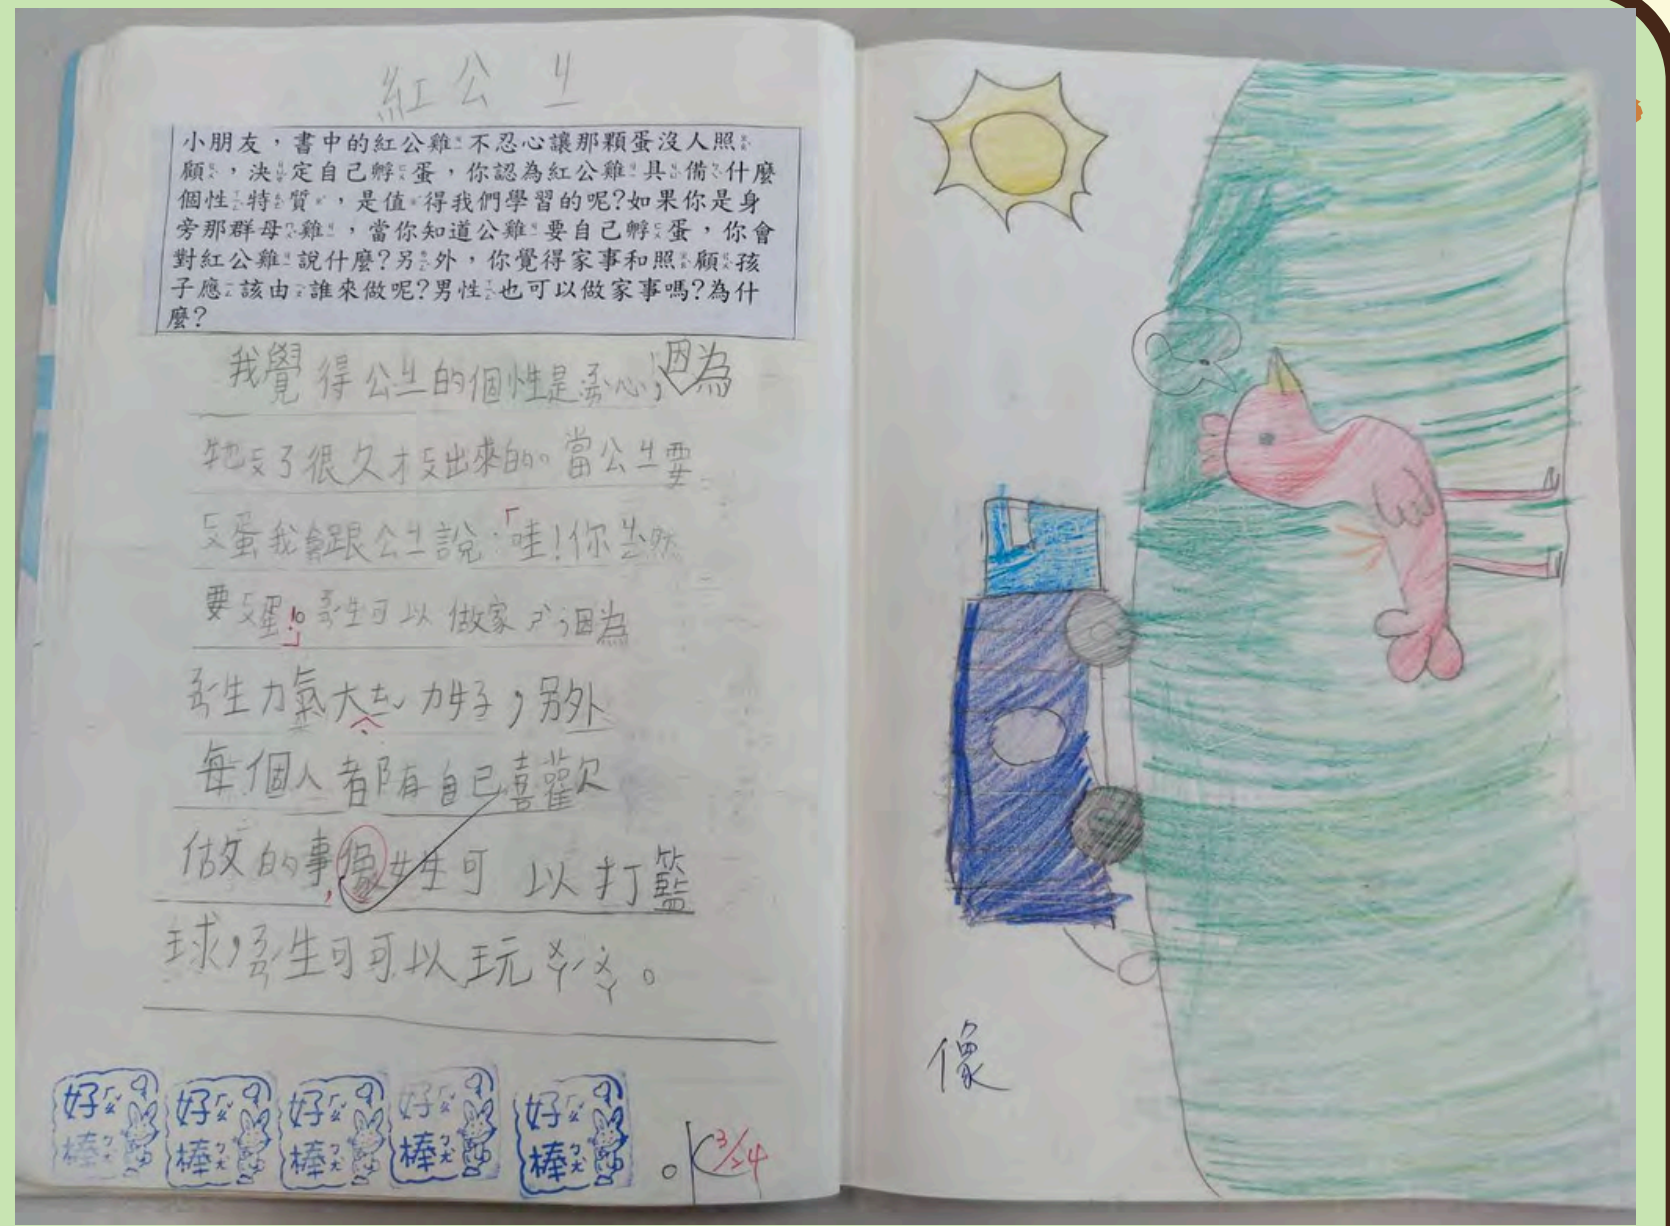 紅公ㄐㄧ
小朋友，書中的紅公雞不忍心讓那顆蛋沒人照
顧，決定自己孵蛋，你認為紅公雞具備什麼
個性特質，是值得我們學習的呢?如果你是身
旁那群母雞，當你知道公雞要自己孵蛋，你會
對紅公雞說什麼?另外，你覺得家事和照顧孩
子應該由誰來做呢?男性也可以做家事嗎?為什
麼?
我覺得公ㄐㄧ的個性是 心，因為
牠ㄈㄨ了很久才ㄈㄨ出來的。當公ㄐㄧ要
ㄈㄨ蛋我會跟公ㄐㄧ說：「哇!你 然
要ㄈㄨ蛋!」 生可以做家ㄕˋ，因為
ㄋㄢˊ生力氣大 力好，另外
每個人都有自己喜歡
做的事，像女生可以打籃
球，ㄋㄢˊ生可可以玩ㄨㄚˊㄨㄚ。
像
好ㄏㄠˇ棒ㄅㄤˋ
好ㄏㄠˇ棒ㄅㄤˋ
好ㄏㄠˇ棒ㄅㄤˋ
好ㄏㄠˇ棒ㄅㄤˋ
好ㄏㄠˇ棒ㄅㄤˋ
3/24